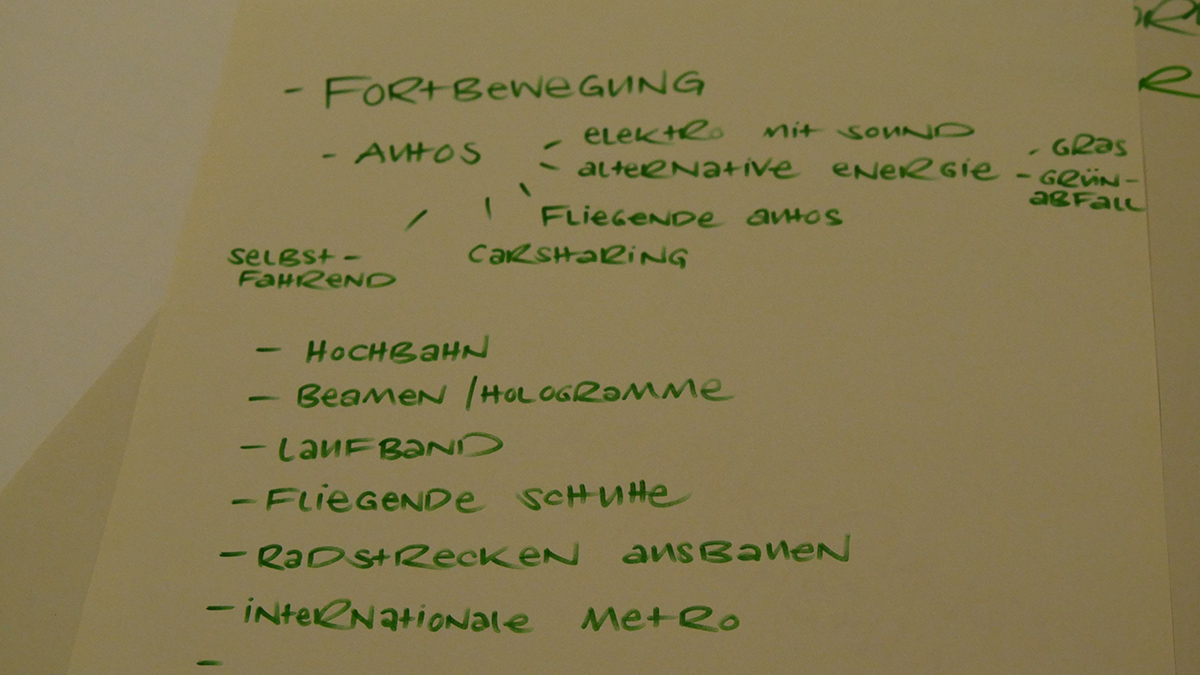 - FORTBEWEGUNG
- AUTOS
- ELEKTRO MIT SOUND
- ALTERNATIVE ENERGIE
- GRAS
- GRÜN-
ABFALL
FLIEGENDE AUTOS
CARSHARING
SELBST-
FAHREND
- HOCHBAHN
- BEAMEN / HOLOGRAMME
- LAUFBAND
- FLIEGENDE SCHUHE
- RADSTRECKEN AUSBAUEN
- INTERNATIONALE METRO
-